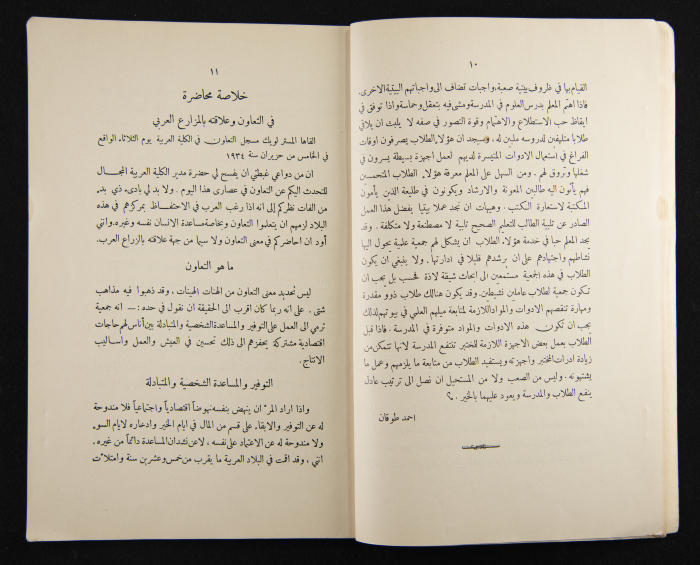 ١٠
القيام بها في ظروف بيتية صعبة، واجبات تضاف الى واجباتهم البيتية الاخرى.
فاذا اهتم المعلم بدرس العلوم في المدرسة ومشى فيه بتعقل وحماسة واذا توفق في
ايقاظ حب الاستطلاع والاهتمام وقوة التصور في صفه لا يلبث ان يلاقي
طلابا متلهفين لدروسه ملبين له، وسيجد ان هؤلاء الطلاب يصرفون اوقات
الفراغ في استعمال الادوات المتيسرة لديهم لعمل اجهزة بسيطة يسرون في
شغلها وتروق لهم. ومن السهل على المعلم معرفة هؤلاء الطلاب المتحمسين
فهم يأتون اليه طالبين المعونة والارشاد ويكونون في طليعة الذين يأمون
المكتبة لاستعارة الكتب. وهيهات ان نجد عملا بيتيا يفضل هذا العمل
الصادر عن تلبية الطالب للتعليم الصحيح تلبية لا مصطنعة ولا متكلفة. وقد
يجد المعلم حبا في خدمة هؤلاء الطلاب ان يشكل لهم جمعية علمية يحول اليها
نشاطهم واجتهادهم على ان يرشدهم قليلا في ادارتها. ولا ينبغي ان يكون
الطلاب في هذه الجمعية مستمعين الى ابحاث شيقة لاذة فحسب بل يجب ان
تكون جمعية لطلاب عاملين نشيطين. وقد يكون هنالك طلاب ذوو مقدرة
ومهارة تنقصهم الادوات والمواد اللازمة لمتابعة ميلهم العلمي في بيوتهم لذلك
يجب ان تكون هذه الادوات والمواد متوفرة في المدرسة. فاذا قبل
الطلاب بعمل بعض الاجهزة اللازمة للمختبر تنتفع المدرسة لانها تتمكن من
زيادة ادوات المختبر واجهزته ويستفيد الطلاب من متابعة ما يلزمهم وعمل ما
يشتهونه. وليس من الصعب ولا من المستحيل ان نصل الى ترتيب عادل
ينفع الطلاب والمدرسة ويعود عليهما بالخير.
احمد طوقان
١١
خلاصة محاضرة
في التعاون وعلاقته بالمزارع العربي
القاها المستر لويك مسجل التعاون في الكلية العربية يوم الثلاثاء الواقع
في الخامس من حزيران سنة ١٩٣٤
ان من دواعي غبطتي ان يفسح لي حضرة مدير الكلية العربية المجال
للتحدث اليكم عن التعاون في عصارى هذا اليوم. ولا بد لي بادىء ذي بدء
من الفات نظركم إلى انه اذا رغب العرب في الاحتفاظ بمركزهم في هذه
البلاد لزمهم ان يتعلموا التعاون وبخاصة مساعدة الانسان نفسه وغيره. وانني
أود ان احاضركم في معنى التعاون ولا سيما من جهة علاقته بالزراع العرب.
ما هو التعاون
ليس تحديد معنى التعاون من الهنات الهينات. وقد ذهبوا فيه مذاهب
شتى. على انه ربما كان اقرب الى الحقيقة ان نقول في حده :— انه جمعية
ترمي الى العمل على التوفير والمساعدة الشخصية والمتبادلة بين أناس لهم حاجات
اقتصادية مشتركة يحفزهم الى ذلك تحسين في العيش والعمل واساليب
الانتاج.
التوفير والمساعدة الشخصية والمتبادلة
واذا اراد المرء ان ينهض بنفسه نهوضاً اقتصادياً واجتماعياً فلا مندوحة
له عن التوفير والابقاء على قسم من المال في ايام الخير وادخاره لايام السوء
ولا مندوحة له عن الاعتماد على نفسه، لا عن نشدان المساعدة دائماً من غيره.
انني، وقد اقمت في البلاد العربية ما يقرب من خمس وعشرين سنة وامتلأت